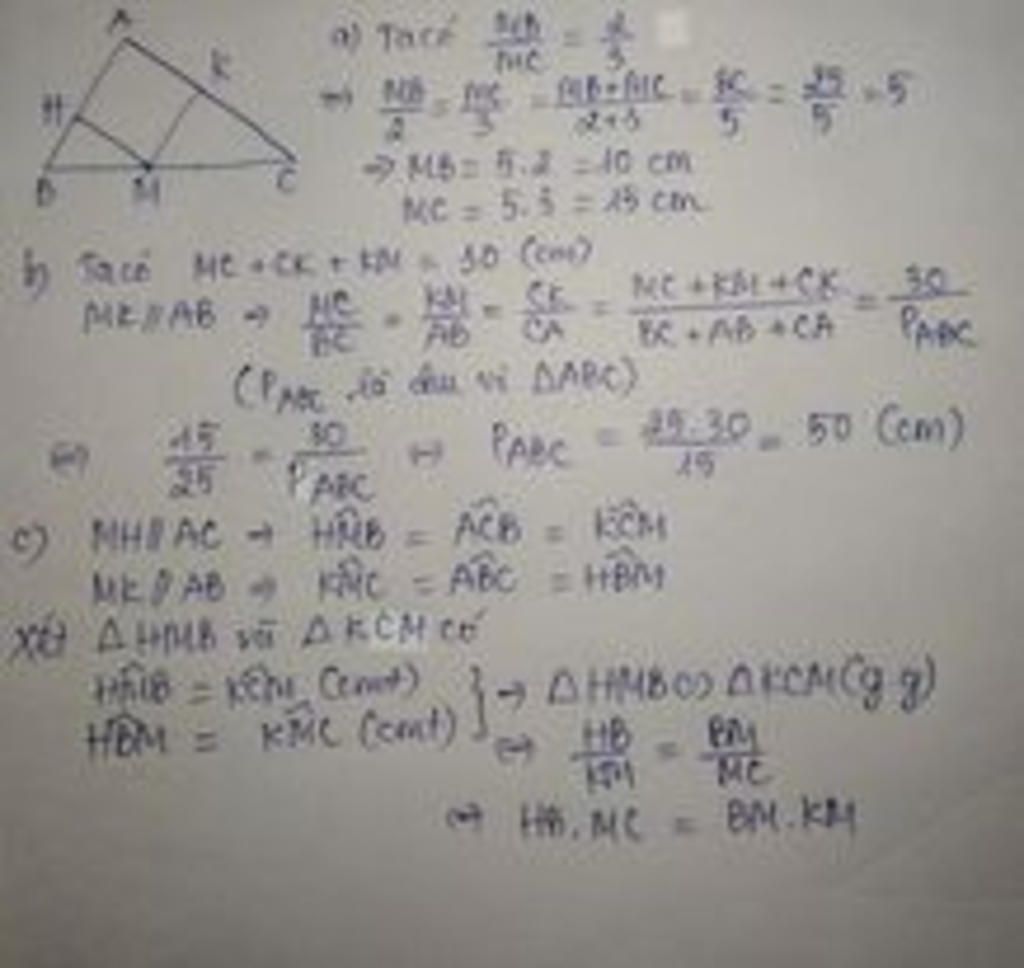 A
K
H
B M C
a) Ta có MB/MC = 2/3
⇒ MB/2 = MC/3 = MB+MC/2+3 = BC/5 = 25/5 = 5
⇒ MB = 5.2 = 10 cm
MC = 5.3 = 15 cm
b) Ta có MC + CK + KM = 30 (cm)
MK // AB ⇒ MC/BC = KM/AB = CK/CA = MC + KM + CK/BC + AB + CA = 30/P_ABC
(P_ABC là chu vi ΔABC)
⇔ 15/25 = 30/P_ABC ⇔ P_ABC = 25.30/15 = 50 (cm)
c) MH // AC ⇒ HM̂B = AĈB = KĈM
MK // AB ⇒ KM̂C = AB̂C = HB̂M
Xét Δ HMB và Δ KCM có
HM̂B = KĈM (cmt) } ⇒ Δ HMB ∽ Δ KCM (g.g)
HB̂M = KM̂C (cmt)
⇔ HB/KM = BM/MC
⇔ HB.MC = BM.KM